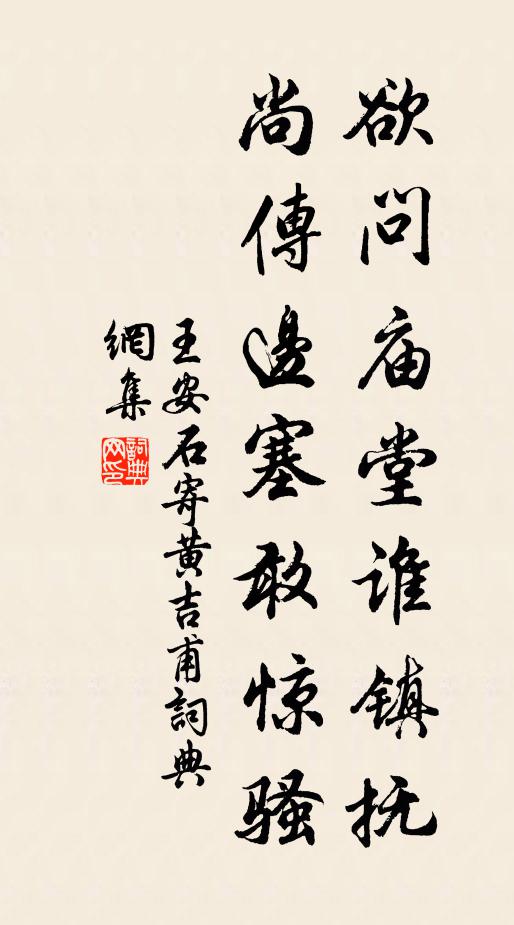 欲问庙堂谁镇抚
尚傳邊塞敢惊骚
王安石寄黄吉甫詞典
網集
詞典
网印